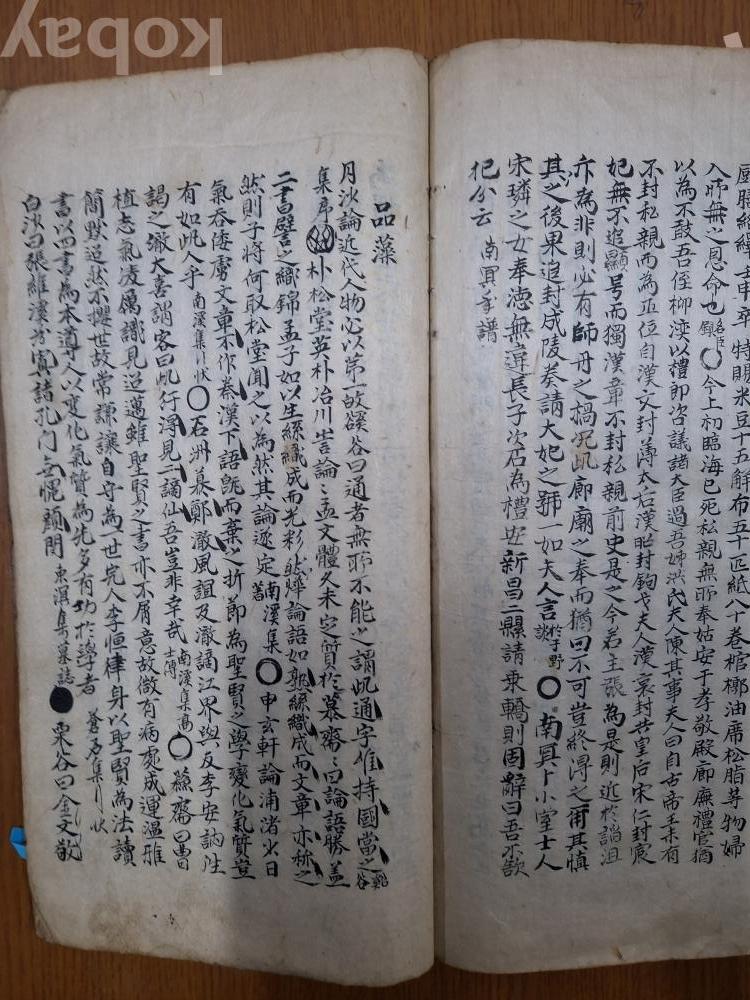 入府無之恩命也 〇今上初臨海已死私親無所奉姑安于孝敬殿廊廡禮官猶
以為不敢吾侄柳浹以禮郎咨議諸大臣過吾姊洪氏夫人陳其事夫人曰自古帝王未有
不封私親而為正位自漢文封薄太后漢昭封鉤弋夫人漢哀封共皇后宋仁封宸
妃無不追顯号而獨漢章不封私親前史是之今若主張為是則近於諂沮
亦為非則必有師丹之禍況此廊廟之奉而猶曰不可豈終得之甭其慎
其之後果追封成陵奏請大妃之號一如夫人言 於于野談 〇南冥卜小室士人
宋璘之女奉德無違長子次石為禮安新昌二縣請乘轎則固辭曰吾不欲
犯分云 南冥年譜
品藻
月沙論近代人物必以第一故谿谷曰通者無所不能之謂此通字惟持國當之 谿谷
集序 〇朴松堂英朴冶川訔論論孟文體久未定質於慕齋齋曰論語勝盖
二書譬之織錦孟子如以生絲織成而光彩燁然論語如熟絲織成而文章亦称之
然則子將何取松堂聞之以為然其論遂定 南溪集 〇申玄軒論浦渚少日
氣吞倭虜文章不作秦漢下語旣而棄之折節為聖賢之學變化氣質豈
有如此人乎 南溪集行狀 〇石洲慕鄭澈風誼及澈謫江界與友李安訥往
謁之澈大喜謂客曰此行得見二謫仙吾豈非幸哉 南溪集高士傳 〇蘇齋曰曺
植志氣凌厲識見迢邁雖聖賢之書亦不屑意故微有病處成運溫雅
簡默逌然不攖世故常謙讓自守為一世完人李恒律身以聖賢為法讀
書以四書為本導人以變化氣質為先多有功於學者 蒼石集行狀
白沙曰張維漢若寘諸孔门无愧顔閔 東溟集墓誌 栗谷曰金文敬
kobay